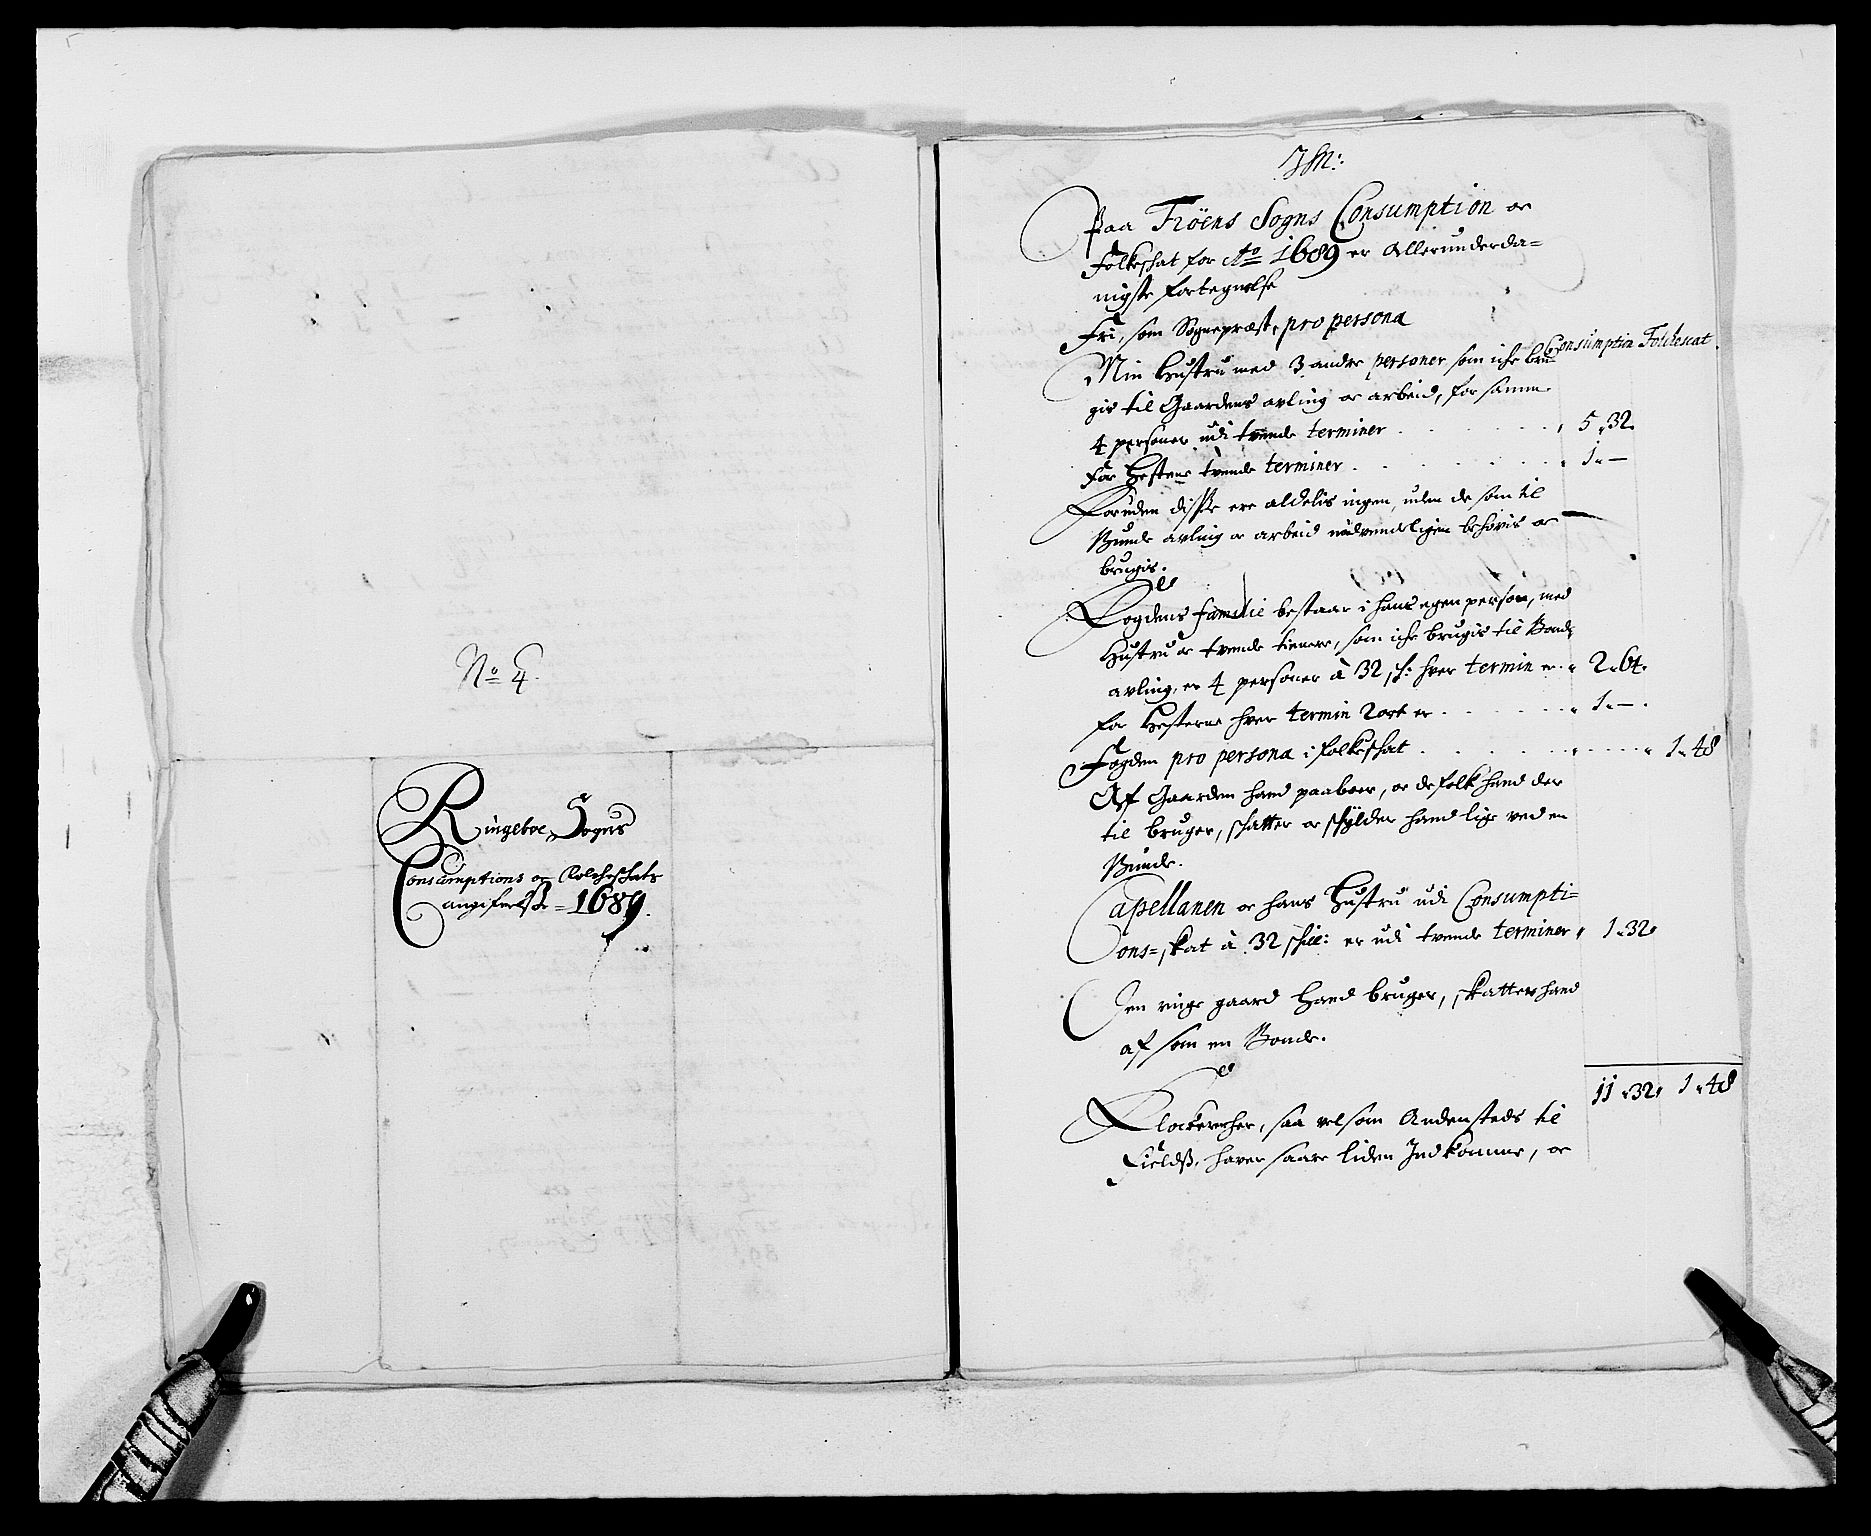 No 4.
Ringeboe Sogns
Consumptions og Folcheschats
angifvelse 1689.
Paa Fröens Sogns Consumption oc
Folkeschat for Ao 1689 er Allerunderda=
nigste fortegnelse
Fri, som Sognepræst, pro persona
Consumption Folckescat
Min Hustru med 3 andre personer som iche bru
gis til Gaardens avling oc arbeid, for samme
4 personer udi tvende terminer . . . . . 5 „ 32.
For Hesten tvende terminer . . . . . 1 „ —
Foruden disse ere aldelis ingen, uden de som til
Bunde avling oc arbeid nødvendeligen behøvis oc
brugis.
Fogdens familie bestaar i hans egen person, med
Hustru oc tvende tienere, som iche brugis til Bonde
avling, er 4 personer à 32 sh: hver termin er „ 2 „ 64.
for Hesterne hver termin 2 ort er . . . . . 1 „ —.
Fogden pro persona i folkeschat . . . . . 1 „ 48
Af Gaarden hand paaboer, oc de folk hand der
til bruger, schatter oc schylder hand lige ved en
Bunde.
Capellanen oc hans Hustru udi Consumpti=
ons=skat à 32 schil: er udi tvende terminer „ 1 „ 32 „
Den ringe gaard Hand bruger, skatter hand
af som en Bonde.
11 „ 32 „ 1 „ 48
Klockeren her, saa velsom Andensteds til
Fields, haver saare liden Indkomme, oc